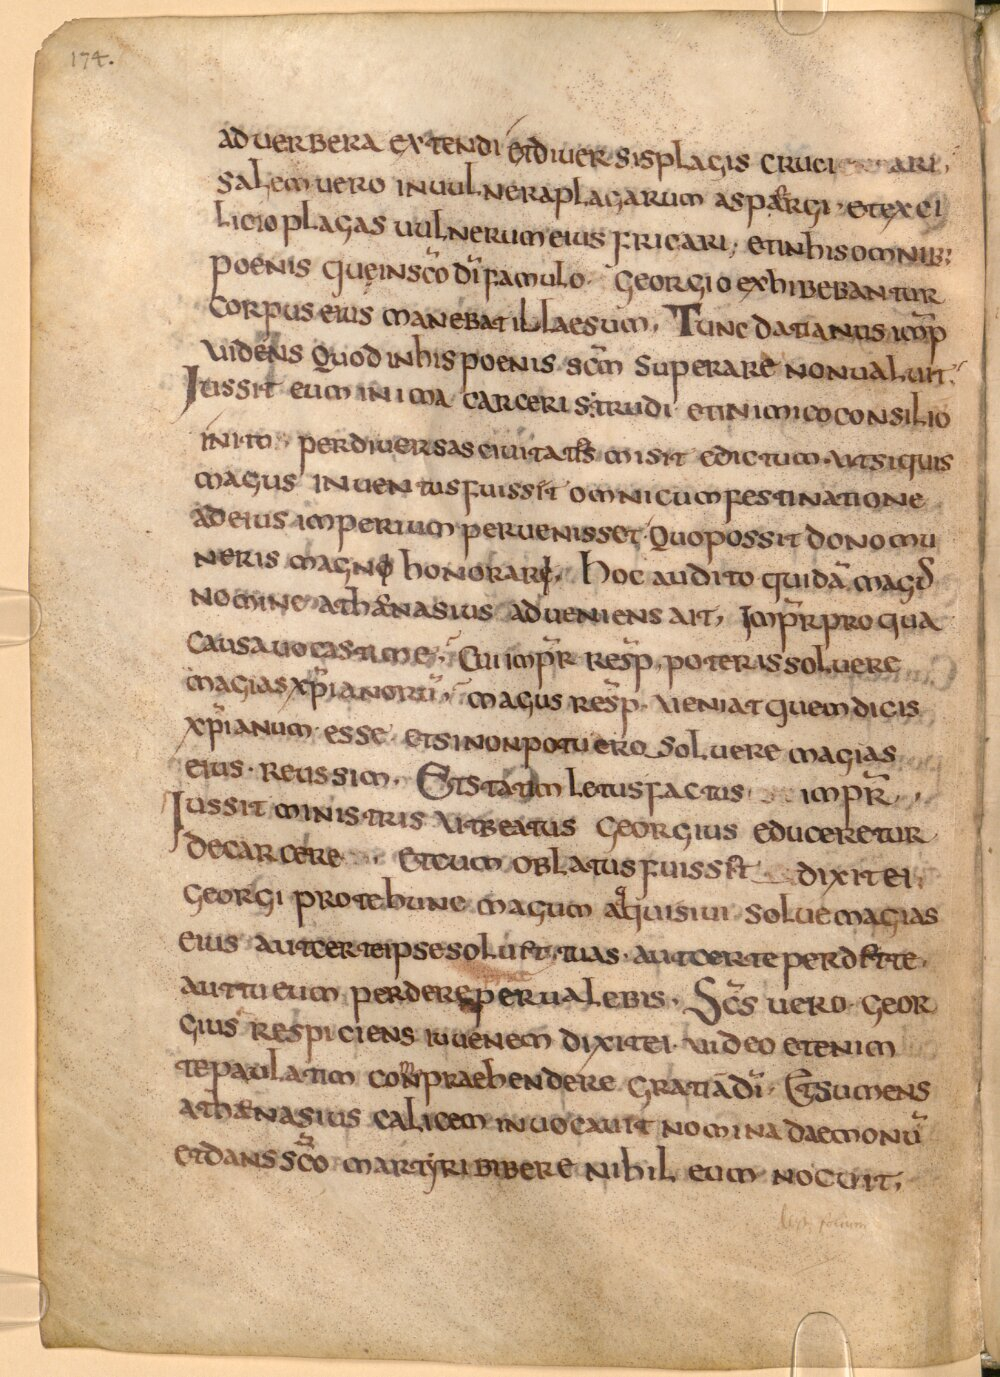 174.
ad uerbera extendi et diuersis plagis cruciari,
Salem uero in uulnera plagarum aspargi · et ex ci
licio plagas uulnerum eius fricari, et in his omnib;
poenis que in sc̄o dī famulo · Georgio exhibebantur
Corpus eius manebat illaesum, Tunc datianus imp̄
uidens quod in his poenis sc̄m superare non ualuit,
Iussit eum in ima carceris trudi et inimico consilio
inito · per diuersas ciuitates misit edictum · ut si quis
magus inuentus fuissit omni cum festinatione
ad eius imperium peruenisset · Quo possit dono mu
neris magno honorari, hoc audito quidā mag
nomine athanasius adueniens ait, Imp̄r pro qua
causa uocasti me, Cui imp̄r resp̄, poteris soluere
magias xp̄ianorū, magus resp̄ · ueniat quem dicis
xp̄ianum · esse et si non potuero soluere magias
eius · reus sim, Et statim letus factus imp̄r,
Iussit ministris ut beatus Georgius educeretur
de carcere et cum oblatus fuissit dixit ei,
Georgi pro te hunc magum adquisiui solue magias
eius aut certe ipse soluet tuas · aut certe perdet te ·
aut tu eum perdere perualebis · Sc̄s uero · Geor
gius respiciens iuuenem dixit ei · uideo etenim
te paulatim conpraehendere gratiā dī · Et sumens
athanasius calicem inuocauit nomina daemonū
et dans sc̄o martyri bibere nihil eum nocuit,